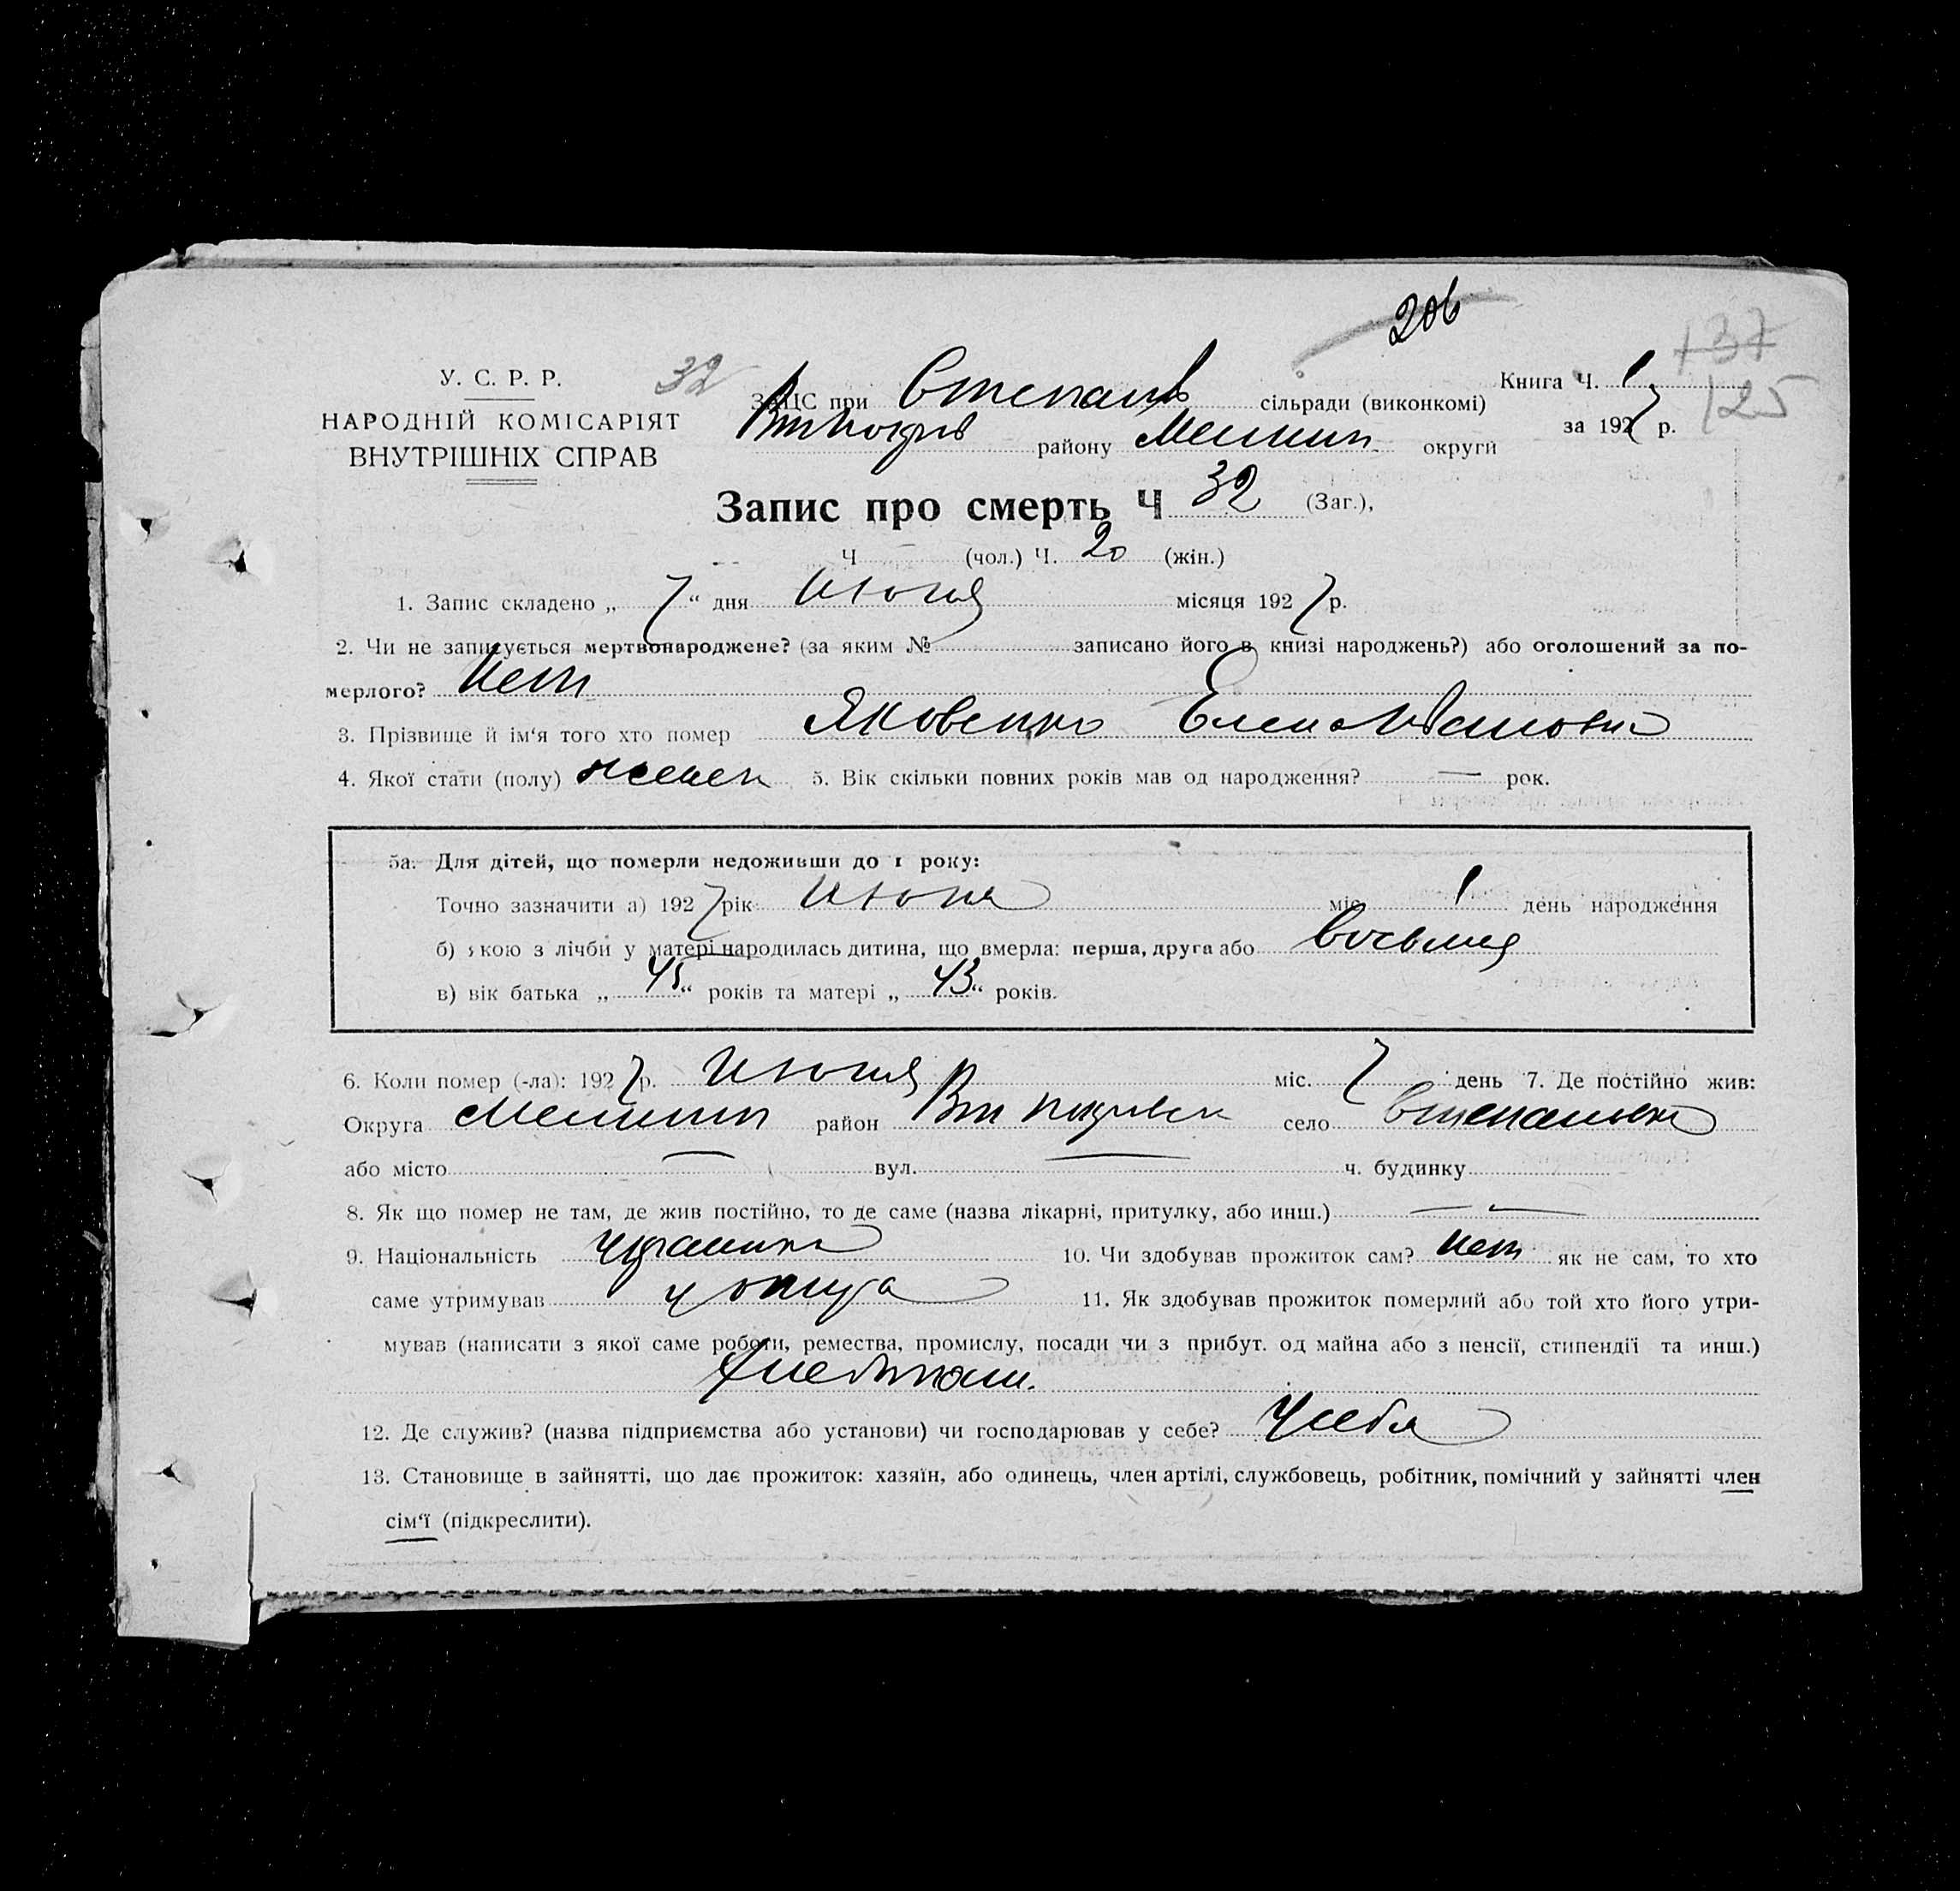 206
137
125
У. С. Р. Р.
НАРОДНІЙ КОМІСАРІЯТ
ВНУТРІШНІХ СПРАВ
32
ЗАЦС при Степанів сільради (виконкомі)
району Мелит округи
Книга Ч. 1
за 1927 р.
Запис про смерть Ч 32 (Заг.),
Ч — (чол.) Ч. 20 (жін.)
1. Запис складено „ 7 “ дня Июня місяця 1927 р.
2. Чи не записується мертвонароджене? (за яким № записано його в книзі народжень?) або оголошений за по-
мерлого? Нет
3. Прізвище й ім‘я того хто помер Яковенко Елена Ивановна
4. Якої стати (полу) женск 5. Вік скільки повних років мав од народження? — рок.
5а. Для дітей, що померли недоживши до 1 року:
Точно зазначити а) 1927 рік Июня міс. 1 день народження
б) якою з лічби у матері народилась дитина, що вмерла: перша, друга або восьмая
в) вік батька „ 45 “ років та матері „ 43 “ років.
6. Коли помер (-ла): 1927 р. Июня міс. 7 день 7. Де постійно жив:
Округа Мелитоп район село Степановка
або місто — вул. — ч. будинку
8. Як що помер не там, де жив постійно, то де саме (назва лікарні, притулку, або инш.) — —
9. Національність украинка 10. Чи здобував прожиток сам? нет як не сам, то хто
саме утримував у отца 11. Як здобував прожиток померлий або той хто його утри-
мував (написати з якої саме роботи, ремества, промислу, посади чи з прибут. од майна або з пенсії, стипендії та инш.)
хлебопаш.
12. Де служив? (назва підприємства або установи) чи господарював у себе? У себя
13. Становище в зайнятті, що дає прожиток: хазяїн, або одинець, член артілі, службовець, робітник, помічний у зайнятті член
сім‘ї (підкреслити).